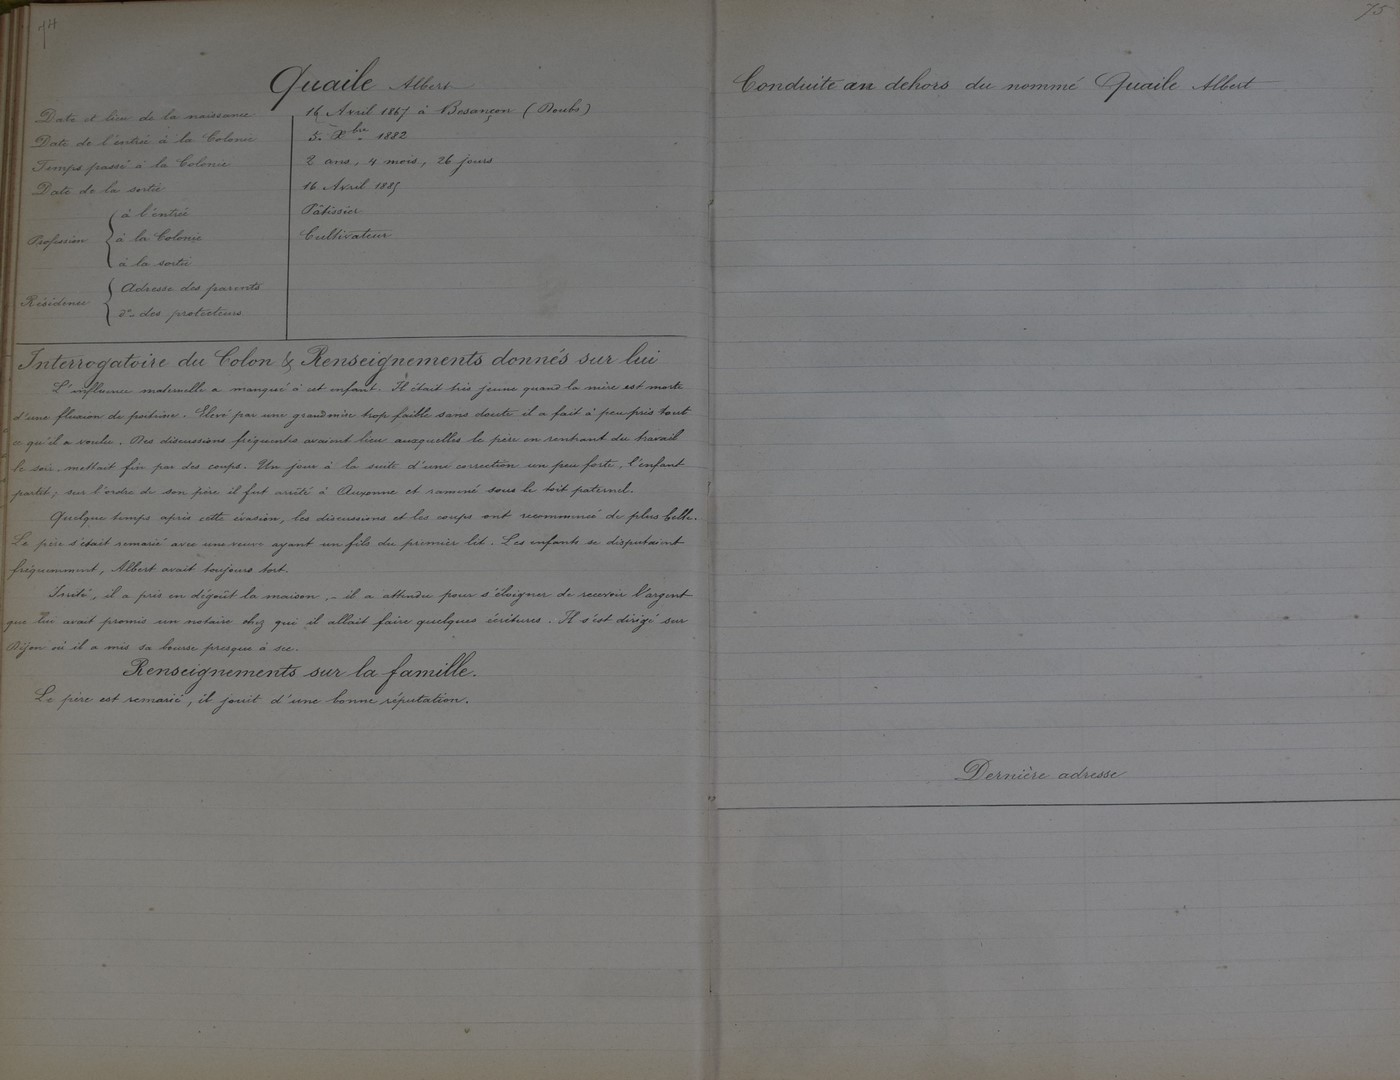 74
Quaile Albert
Date et lieu de la naissance 16 Avril 1867 à Besançon (Doubs)
Date de l'entrée à la Colonie 5. Xbre 1882
Temps passé à la Colonie 2 ans, 4 mois, 26 jours
Date de la sortie 16 Avril 1885
Profession
à l'entrée Pâtissier
à la Colonie Cultivateur
à la sortie
Résidence
Adresse des parents
do- des protecteurs
Interrogatoire du Colon & Renseignements donnés sur lui
L'influence maternelle a manqué à cet enfant. Il était très jeune quand la mère est morte
d'une fluxion de poitrine. Elevé par une grandmère trop faible sans doute il a fait à peu près tout
ce qu'il a voulu. Des discussions fréquentes avaient lieu auxquelles le père en rentrant du travail
le soir, mettait fin par des coups. Un jour à la suite d'une correction un peu forte, l'enfant
partit; sur l'ordre de son père il fut arrêté à Auxonne et ramené sous le toit paternel.
Quelque temps après cette évasion, les discussions et les coups ont recommencé de plus belle.
Le père s'était remarié avec une veuve ayant un fils du premier lit. Les enfants se disputaient
fréquemment, Albert avait toujours tort.
Irrité, il a pris en dégoût la maison, - il a attendu pour s'éloigner de recevoir l'argent
que lui avait promis un notaire chez qui il allait faire quelques écritures. Il s'est dirigé sur
Dijon où il a mis sa bourse presque à sec.
Renseignements sur la famille.
Le père est remarié, il jouit d'une bonne réputation.
75
Conduite au dehors du nommé Quaile Albert
Dernière adresse